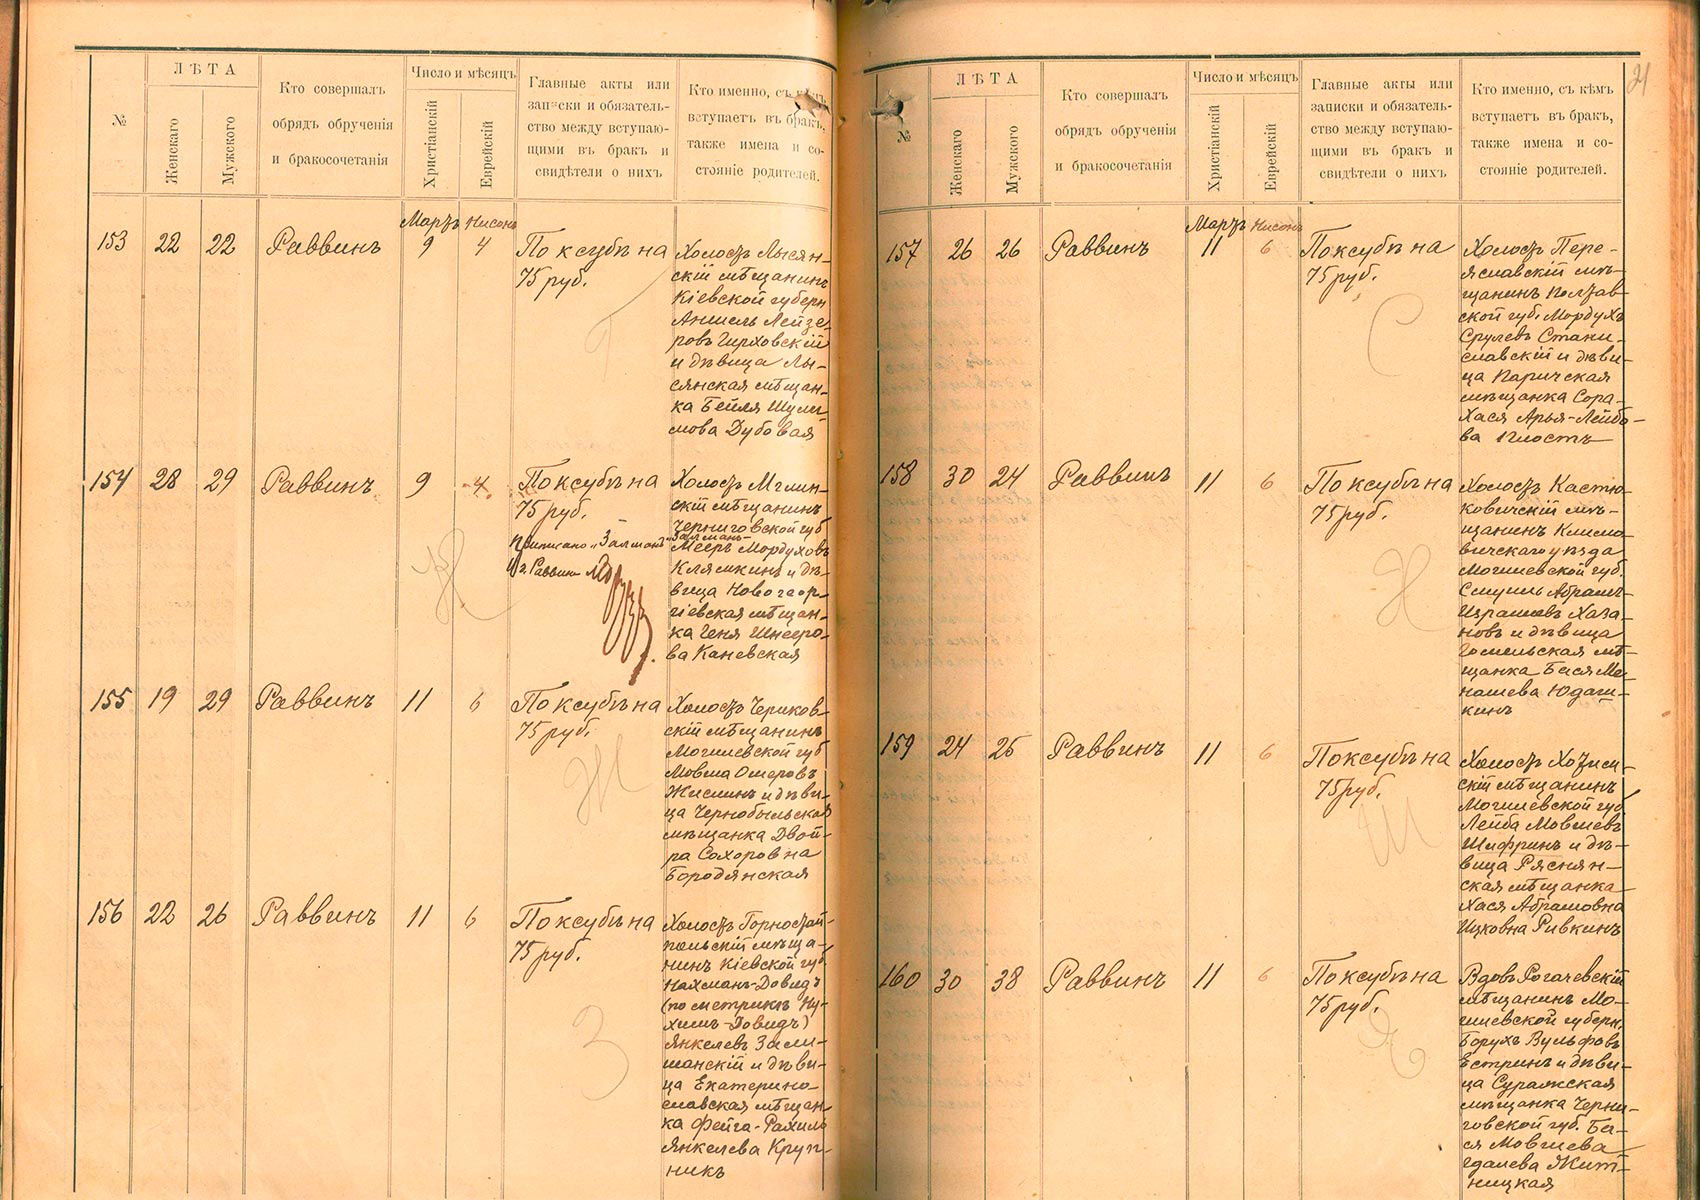 №
ЛѢТА
Женскаго
Мужского
Кто совершалъ
обрядъ обрученія
и бракосочетанія
Число и мѣсяцъ
Христіанскій
Еврейскій
Главные акты или
записки и обязатель-
ство между вступаю-
щими въ бракъ и
свидѣтели о нихъ
Кто именно, съ кѣмъ
вступаетъ въ бракъ,
также имена и со-
стояніе родителей.
Мартъ Нисонъ
153 22 22 Раввинъ 9 4 По ксубѣ на
75 руб.
Холостъ Лысян-
скій мѣщанинъ
Кіевской губерн
Аншель Лейзе-
ровъ Гирховскій
и дѣвица Лы-
сянская мѣщан-
ка Бейля Шули-
мова Дубовая
154 28 29 Раввинъ 9 4 По ксубѣ на
75 руб.
Приписано „Залманъ"
Раввинъ
Холостъ Мглин-
скій мѣщанинъ
Черниговской губ
Залманъ-
Мееръ Мордуховъ
Клямкинъ и дѣ-
вица Новогеор-
гіевская мѣщан-
ка Геня Шнееро-
ва Каневская
155 19 29 Раввинъ 11 6 По ксубѣ на
75 руб.
Ж
Холостъ Чериков-
скій мѣщанинъ
Могилевской губ
Мовша Ошеровъ
Жислинъ и дѣви-
ца Чернобыльская
мѣщанка Двой-
ра Сохоровна
Бородянская
156 22 26 Раввинъ 11 6 По ксубѣ на
75 руб.
З
Холостъ Горностай-
польскій мѣща-
нинъ Кіевской губ
Нахманъ-Довидъ
(по метрикѣ Ну-
химъ-Довидъ)
Янкелевъ Засли-
шанскій и дѣви-
ца Екатерино-
славская мѣщан-
ка Фейга-Рахиль
Янкелева Круп-
никъ
21
№
ЛѢТА
Женскаго
Мужского
Кто совершалъ
обрядъ обрученія
и бракосочетанія
Число и мѣсяцъ
Христіанскій
Еврейскій
Главные акты или
записки и обязатель-
ство между вступаю-
щими въ бракъ и
свидѣтели о нихъ
Кто именно, съ кѣмъ
вступаетъ въ бракъ,
также имена и со-
стояніе родителей.
Мартъ Нисонъ
157 26 26 Раввинъ 11 6 По ксубѣ на
75 руб.
С
Холостъ Пере-
яславскій мѣ-
щанинъ Полтав-
ской губ. Мордухъ
Срулевъ Стани-
славскій и дѣви-
ца Паричская
мѣщанка Сора-
Хася Арья-Лейбо-
ва Клостъ
158 30 24 Раввинъ 11 6 По ксубѣ на
75 руб.
Х
Холостъ Кастю-
ковичскій мѣ-
щанинъ Климо-
вичскаго уѣзда
Могилевской губ.
Смуилъ Абрамъ-
Израилевъ Хаза-
новъ и дѣвица
Гомельская мѣ-
щанка Бася Ме-
нашева Юдаш-
кинъ
159 24 25 Раввинъ 11 6 По ксубѣ на
75 руб.
Ш
Холостъ
скій мѣщанинъ
Могилевской губ
Лейба Мовшевъ
Шифринъ и дѣ-
вица Ряснян-
ская мѣщанка
Хася Абрамовна
Ицковна Ривкинъ
160 30 38 Раввинъ 11 6 По ксубѣ на
75 руб.
Вдовъ Рогачевскій
мѣщанинъ Мо-
гилевской губерн.
Борухъ Вульфовъ
Естринъ и дѣви-
ца Суражская
мѣщанка Черни-
говской губ. Ба-
ся Мовшева
Гдалева Жит-
ницкая